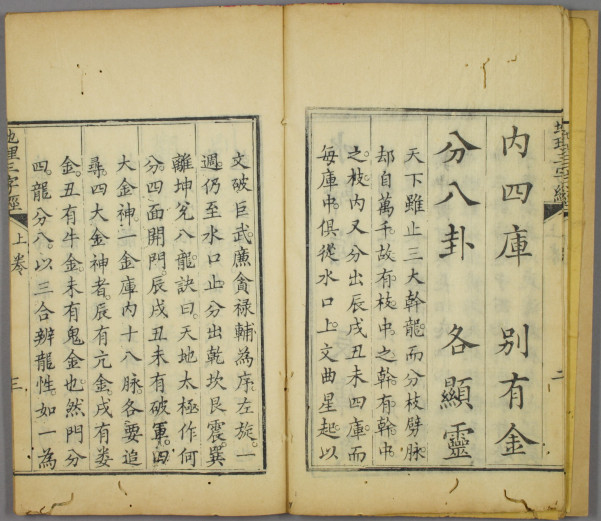 地理三字經
上卷
二
內四庫　別有金
分八卦　各顯靈
天下雖止三大幹龍而分枝劈脉
却自萬千故有枝中之幹有幹中
之枝內又分出辰戌丑未四庫而
每庫中俱從水口上文曲星起以
文破巨武廉貪祿輔為序左旋一
週仍至水口止分出乾坎艮震巽
離坤兌八龍訣曰天地太極作何
分四面開門辰戌丑未有破軍四
大金神一金庫內十八脉各要追
尋四大金神者辰有亢金戌有婁
金丑有牛金未有鬼金也然門分
四龍分八以三合辨龍性如一為
地理三字經
上卷
三